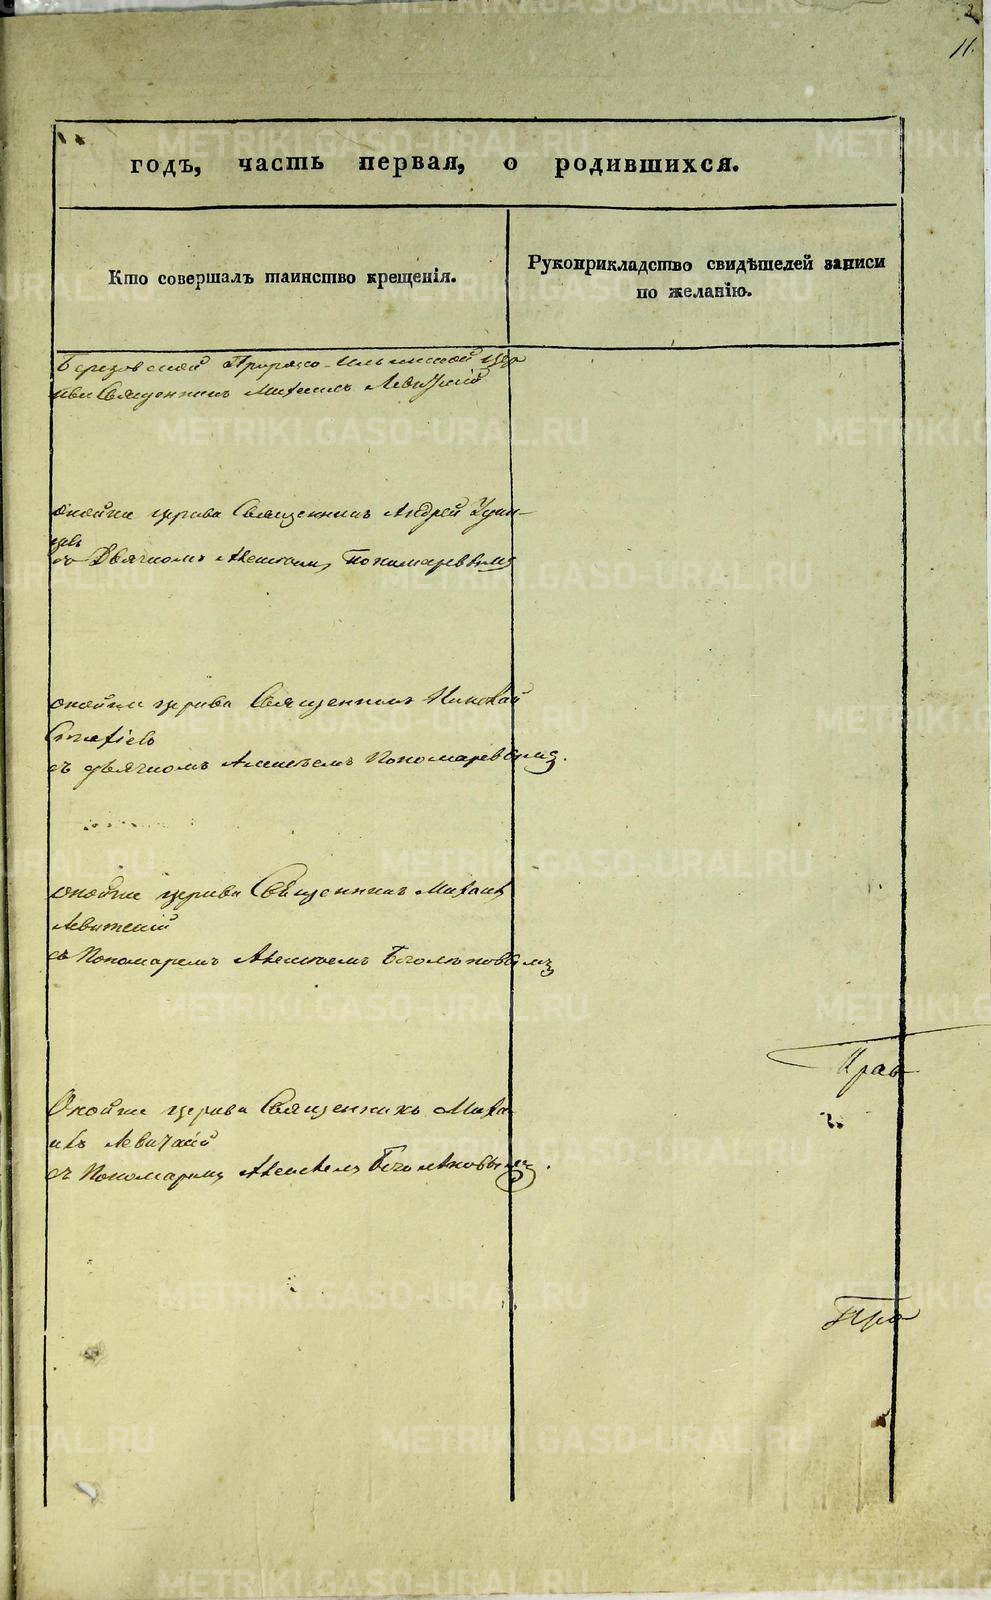 2
11.
годъ, часть первая, о родившихся.
Кто совершалъ таинство крещенія.
Рукоприкладство свидѣтелей записи
по желанію.
Березовской Пророко-Ильинской цер
кви Священникъ Михаилъ Левицкій
онойже церкви Священникъ Андрей Удин-
цевъ
съ Дьячкомъ Алексѣемъ Пономаревымъ
онойже церкви Священникъ Николай
съ дьячкомъ Алексѣемъ Пономаревымъ.
онойже церкви Священникъ Михаилъ
Левицкій
съ Пономаремъ Алексѣемъ Боголюбовымъ
Онойже церкви Священникъ Миха-
илъ Левицкій
съ Пономаремъ Алексѣемъ Боголюбовымъ.
METRIKI.GASO-URAL.RU